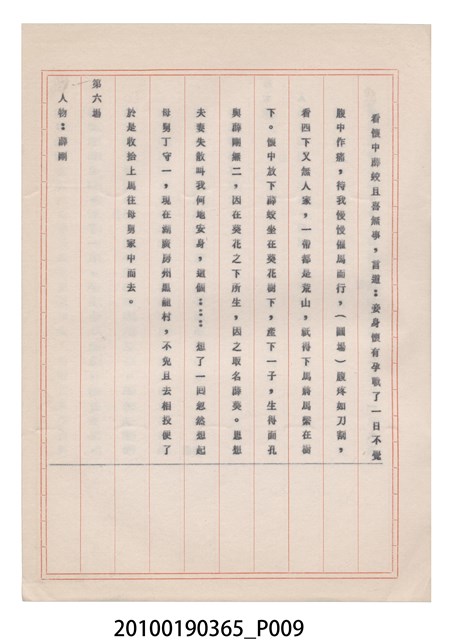 看懷中薛蛟且喜無事，言道：妾身懷有孕戰了一日不覺
腹中作痛，待我慢慢催馬而行，（圓場）腹疼如刀割，
看四下又無人家，一帶都是荒山，祇得下馬將馬繫在樹
下。懷中放下薛蛟坐在葵花樹下，產下一子，生得面孔
與薛剛無二，因在葵花之下所生，因之取名薛葵。思想
夫妻失散叫我何地安身，這個……想了一回忽然想起
母舅丁守一，現在湖廣房州黑龍村，不免且去相投便了
於是收拾上馬往母舅家中而去。
第六場
人物：薛剛
20100190365_P009